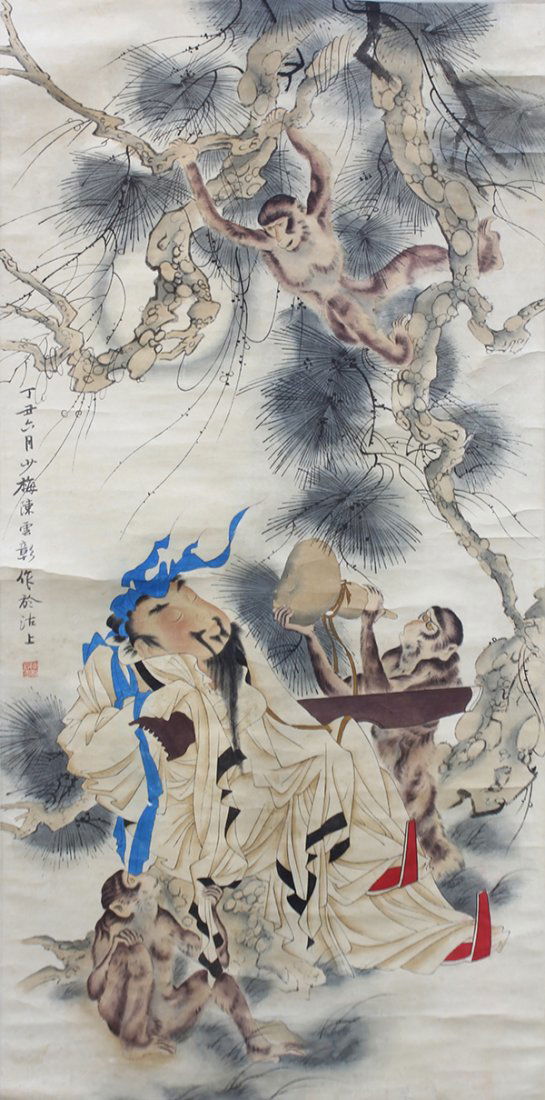 丁丑六月少梅陳雲彰作於沽上